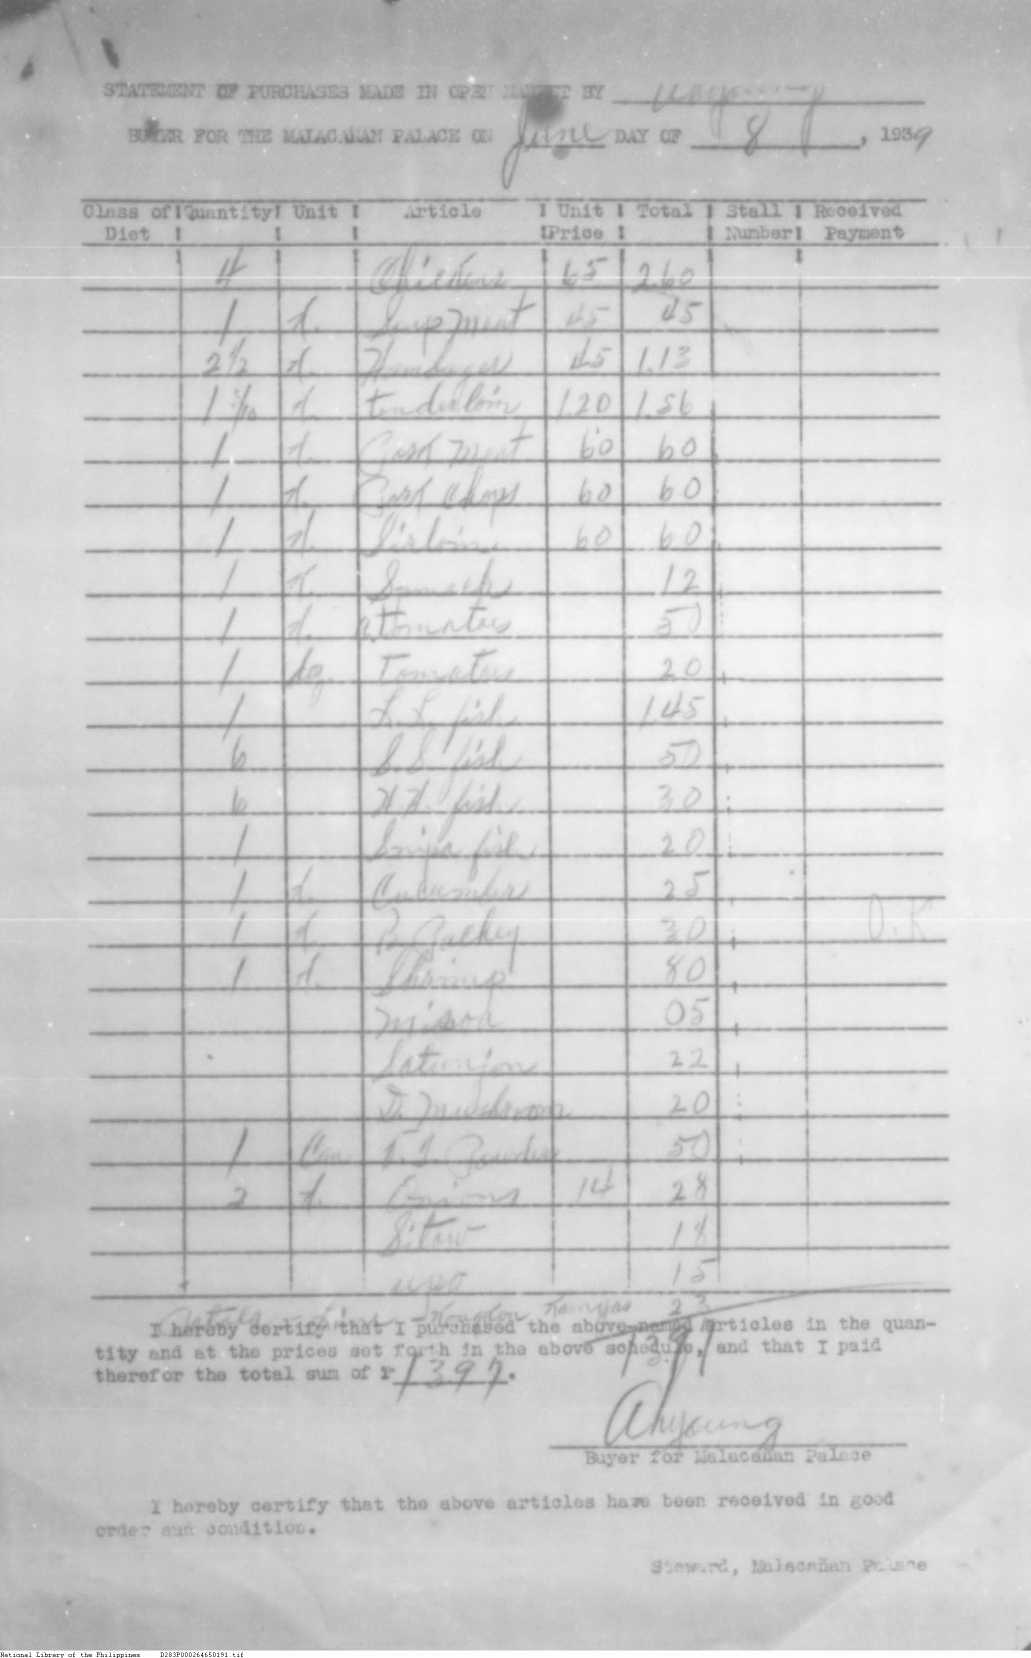 STATEMENT OF PURCHASES MADE IN OPEN MARKET BY Ahyoung
BUYER FOR THE MALACAÑAN PALACE ON June DAY OF 8, 1939
Class of Diet Quantity Unit Article Unit Price Total Stall Number Received Payment
4 Chickens 65 2.60
1 k. Soup Meat 45 45
2 1/2 k. Hamburger 45 1.13
1 3/10 k. tenderloin 1.20 1.56
1 k. Pork Meat 60 60
1 k. Pork Chops 60 60
1 k. Sirloin 60 60
1 k. 12
1 k. tomatoes 50
1 kg. Tomatoes 20
1 L. L. fish 1.45
6 S. S. fish 50
6 H. H. fish 30
1 fish 20
1 k. Cucumber 25
1 k. 30 O.K
1 k. Shrimp 80
Misoa 05
22
Mushroom 20
1 Can Powder 50
2 k. Onions 14 28
Sitaw 18
upo 15
23
I hereby certify that I purchased the above-named articles in the quan-
tity and at the prices set forth in the above schedule, and that I paid
therefor the total sum of ₱ 1397.
Ahyoung
Buyer for Malacañan Palace
I hereby certify that the above articles have been received in good
order and condition.
Steward, Malacañan Palace
National Library of the Philippines D283P000264650191.tif